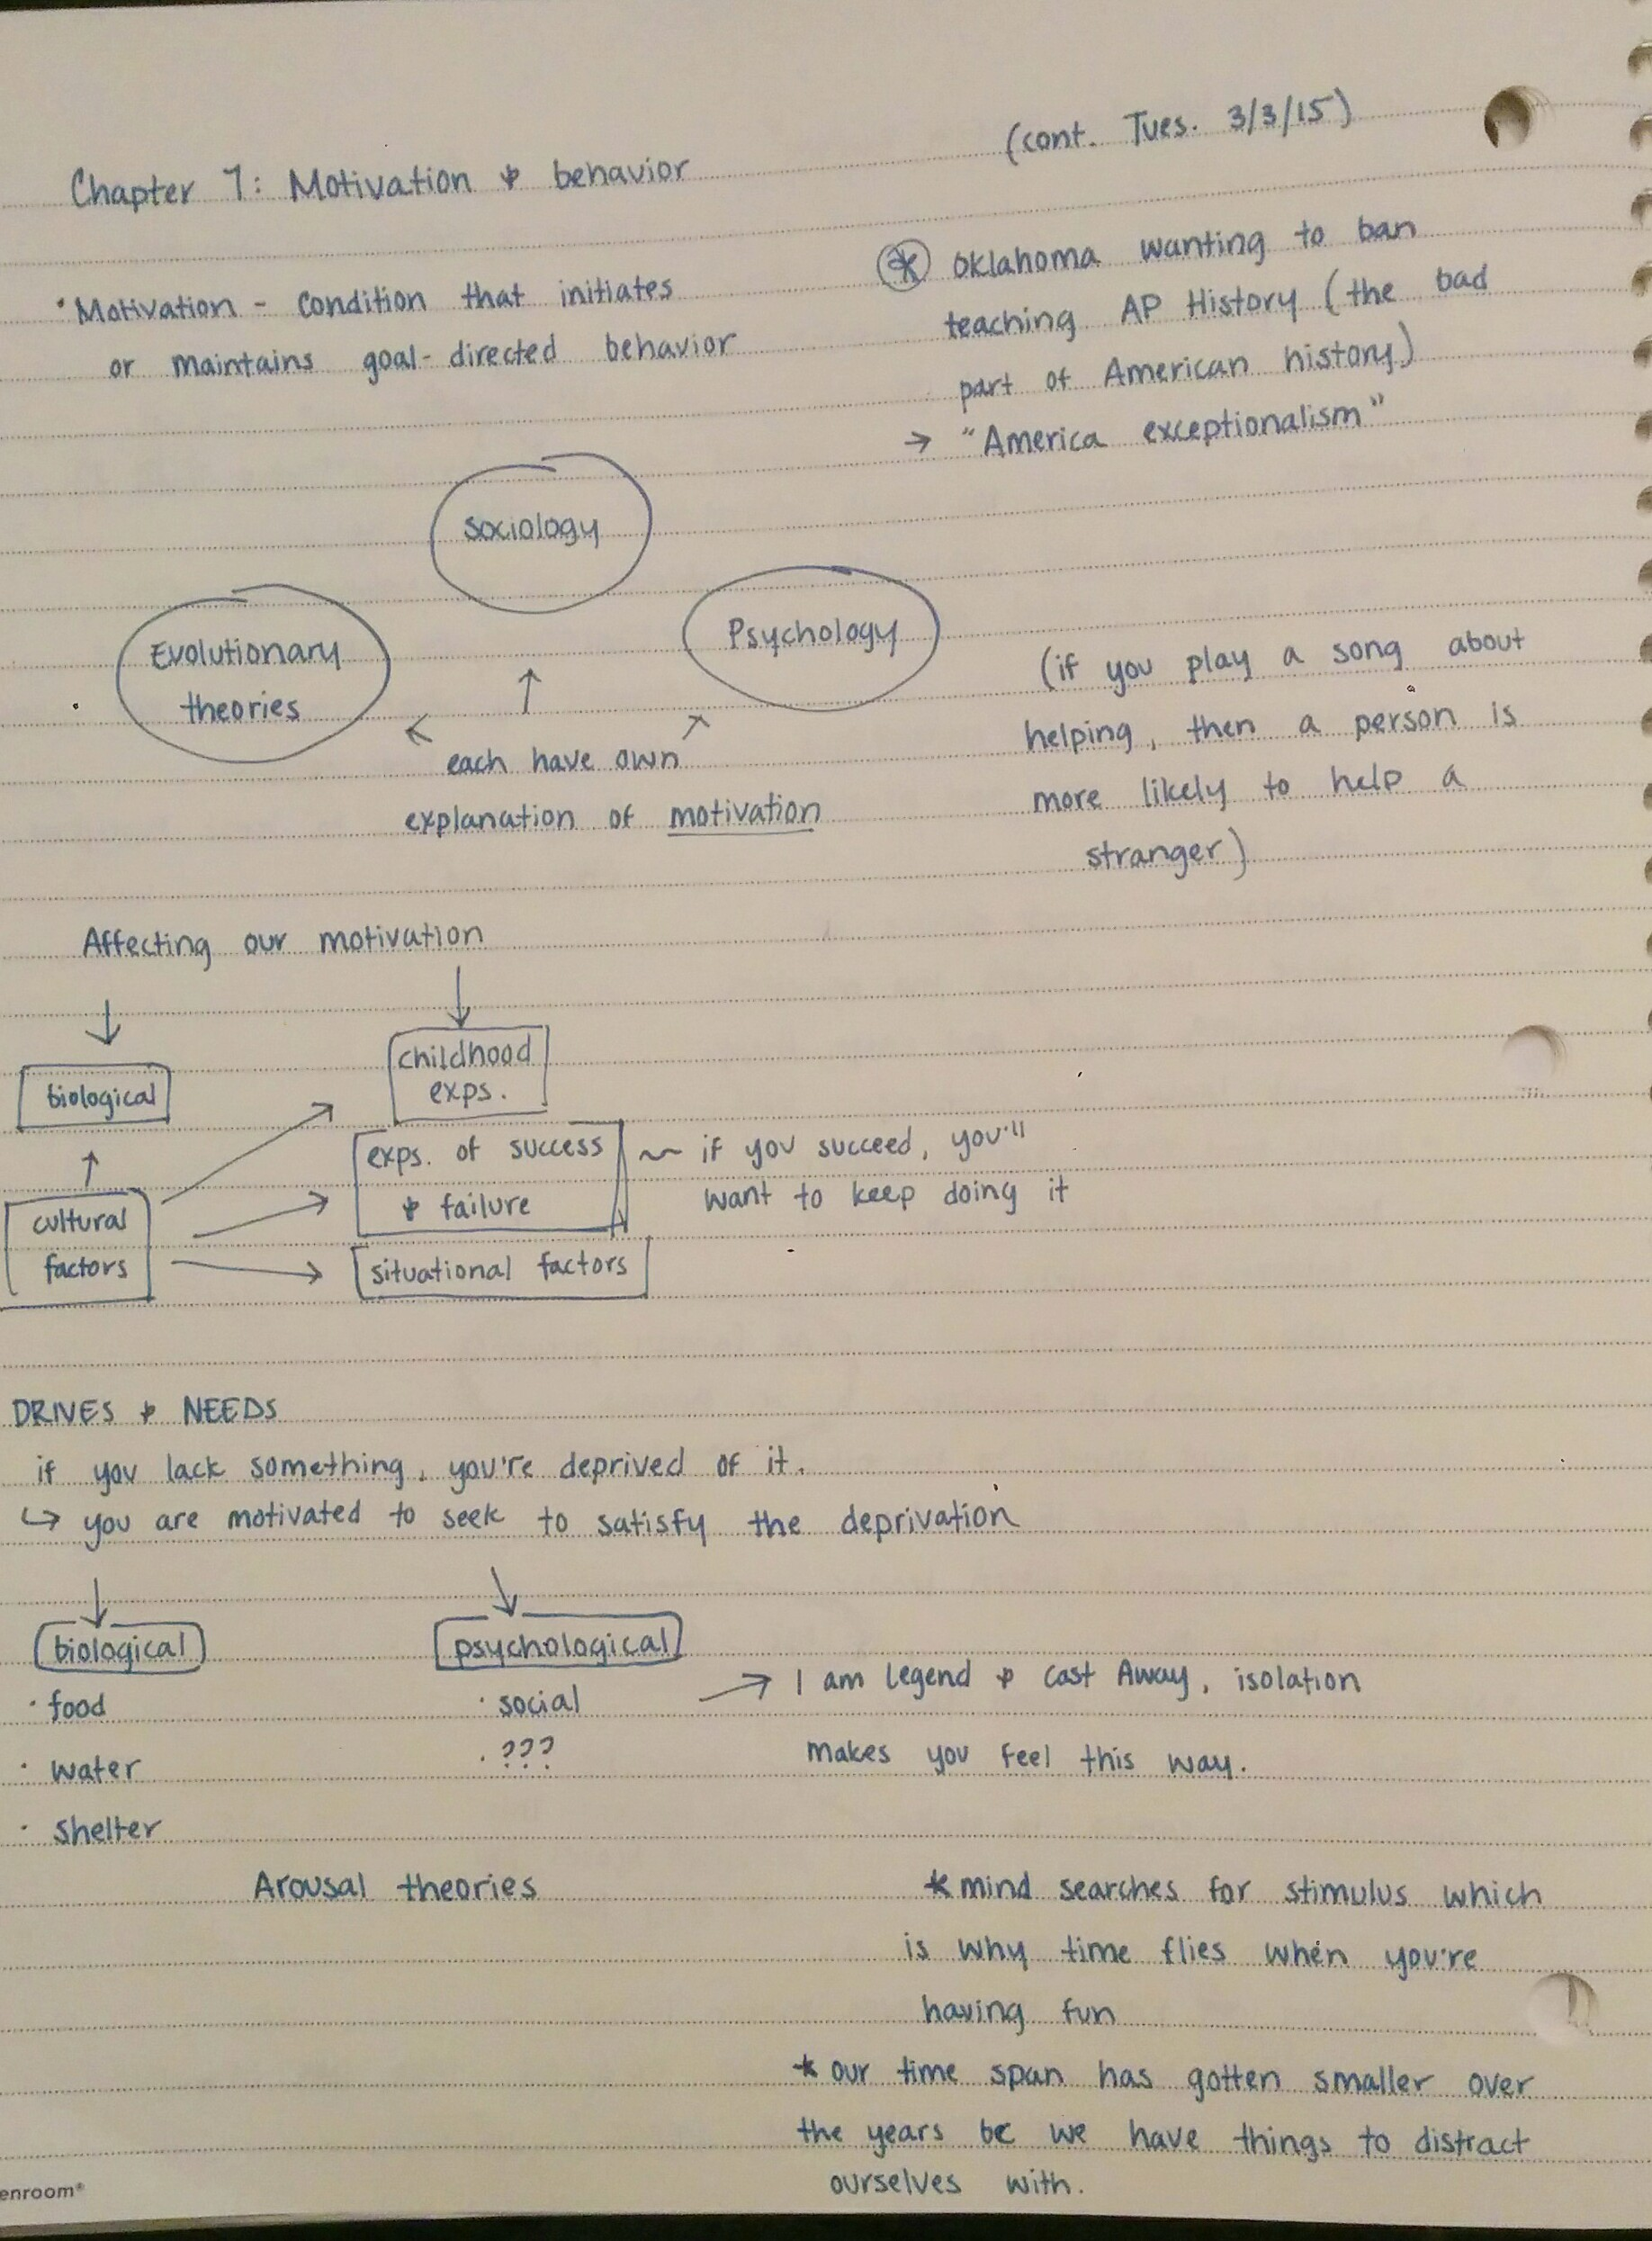 (cont. Tues. 3/3/15)
Chapter 7: Motivation & behavior
• Motivation - condition that initiates
or maintains goal-directed behavior
* Oklahoma wanting to ban
teaching AP History (the bad
part of American history)
→ "America exceptionalism"
Sociology
Evolutionary
theories
Psychology
↑
← each have own ↗
explanation of motivation
(if you play a song about
helping, then a person is
more likely to help a
stranger)
Affecting our motivation
↓ ↓
biological
childhood
exps.
exps. of success
& failure
~ if you succeed, you'll
want to keep doing it
cultural
factors
situational factors
DRIVES & NEEDS
if you lack something, you're deprived of it.
↳ you are motivated to seek to satisfy the deprivation
↓ ↓
biological
• food
• water
• shelter
psychological
• social
• ???
→ I am Legend & Cast Away, isolation
makes you feel this way.
Arousal theories
* mind searches for stimulus which
is why time flies when you're
having fun
* our time span has gotten smaller over
the years bc we have things to distract
ourselves with.
enroom®